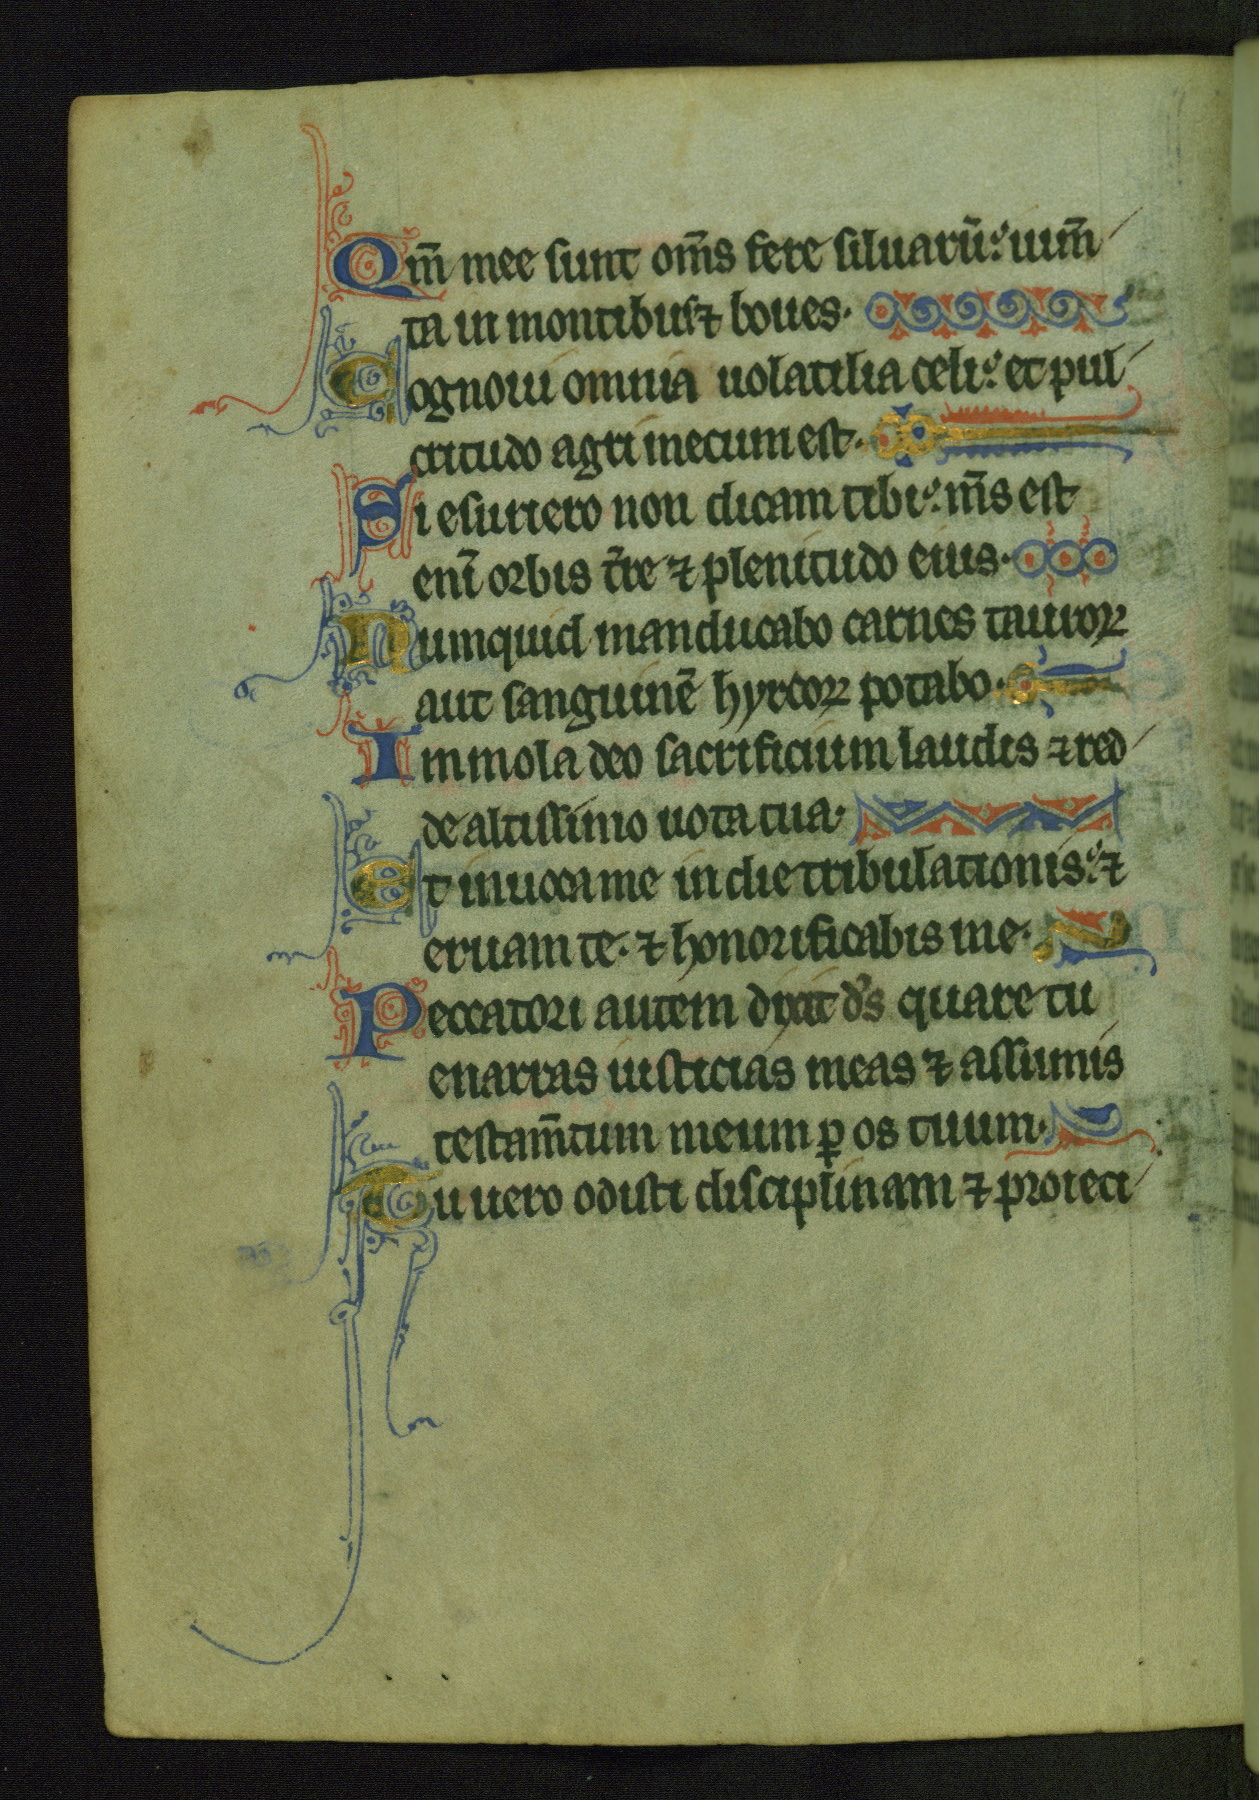 Qm̄ mee sunt om̄s fere siluarū: ium̄
ta in montibus ⁊ boues.
Cognoui omnia uolatilia celi: et pul
critudo agri mecum est.
Si esuriero non dicam tibi: m̄s est
enī orbis t̄re ⁊ plenitudo eius.
Numquid manducabo carnes tauroꝝ
aut sanguinē hyrcoꝝ potabo.
Immola deo sacrificium laudis ⁊ red
de altissimo uota tua.
Et inuoca me in die tribulationis: ⁊
eruam te. ⁊ honorificabis me.
Peccatori autem dixit d̄s quare tu
enarras iusticias meas ⁊ assumis
testam̄tum meum ꝑ os tuum.
Tu uero odisti disciplinam ⁊ proieci